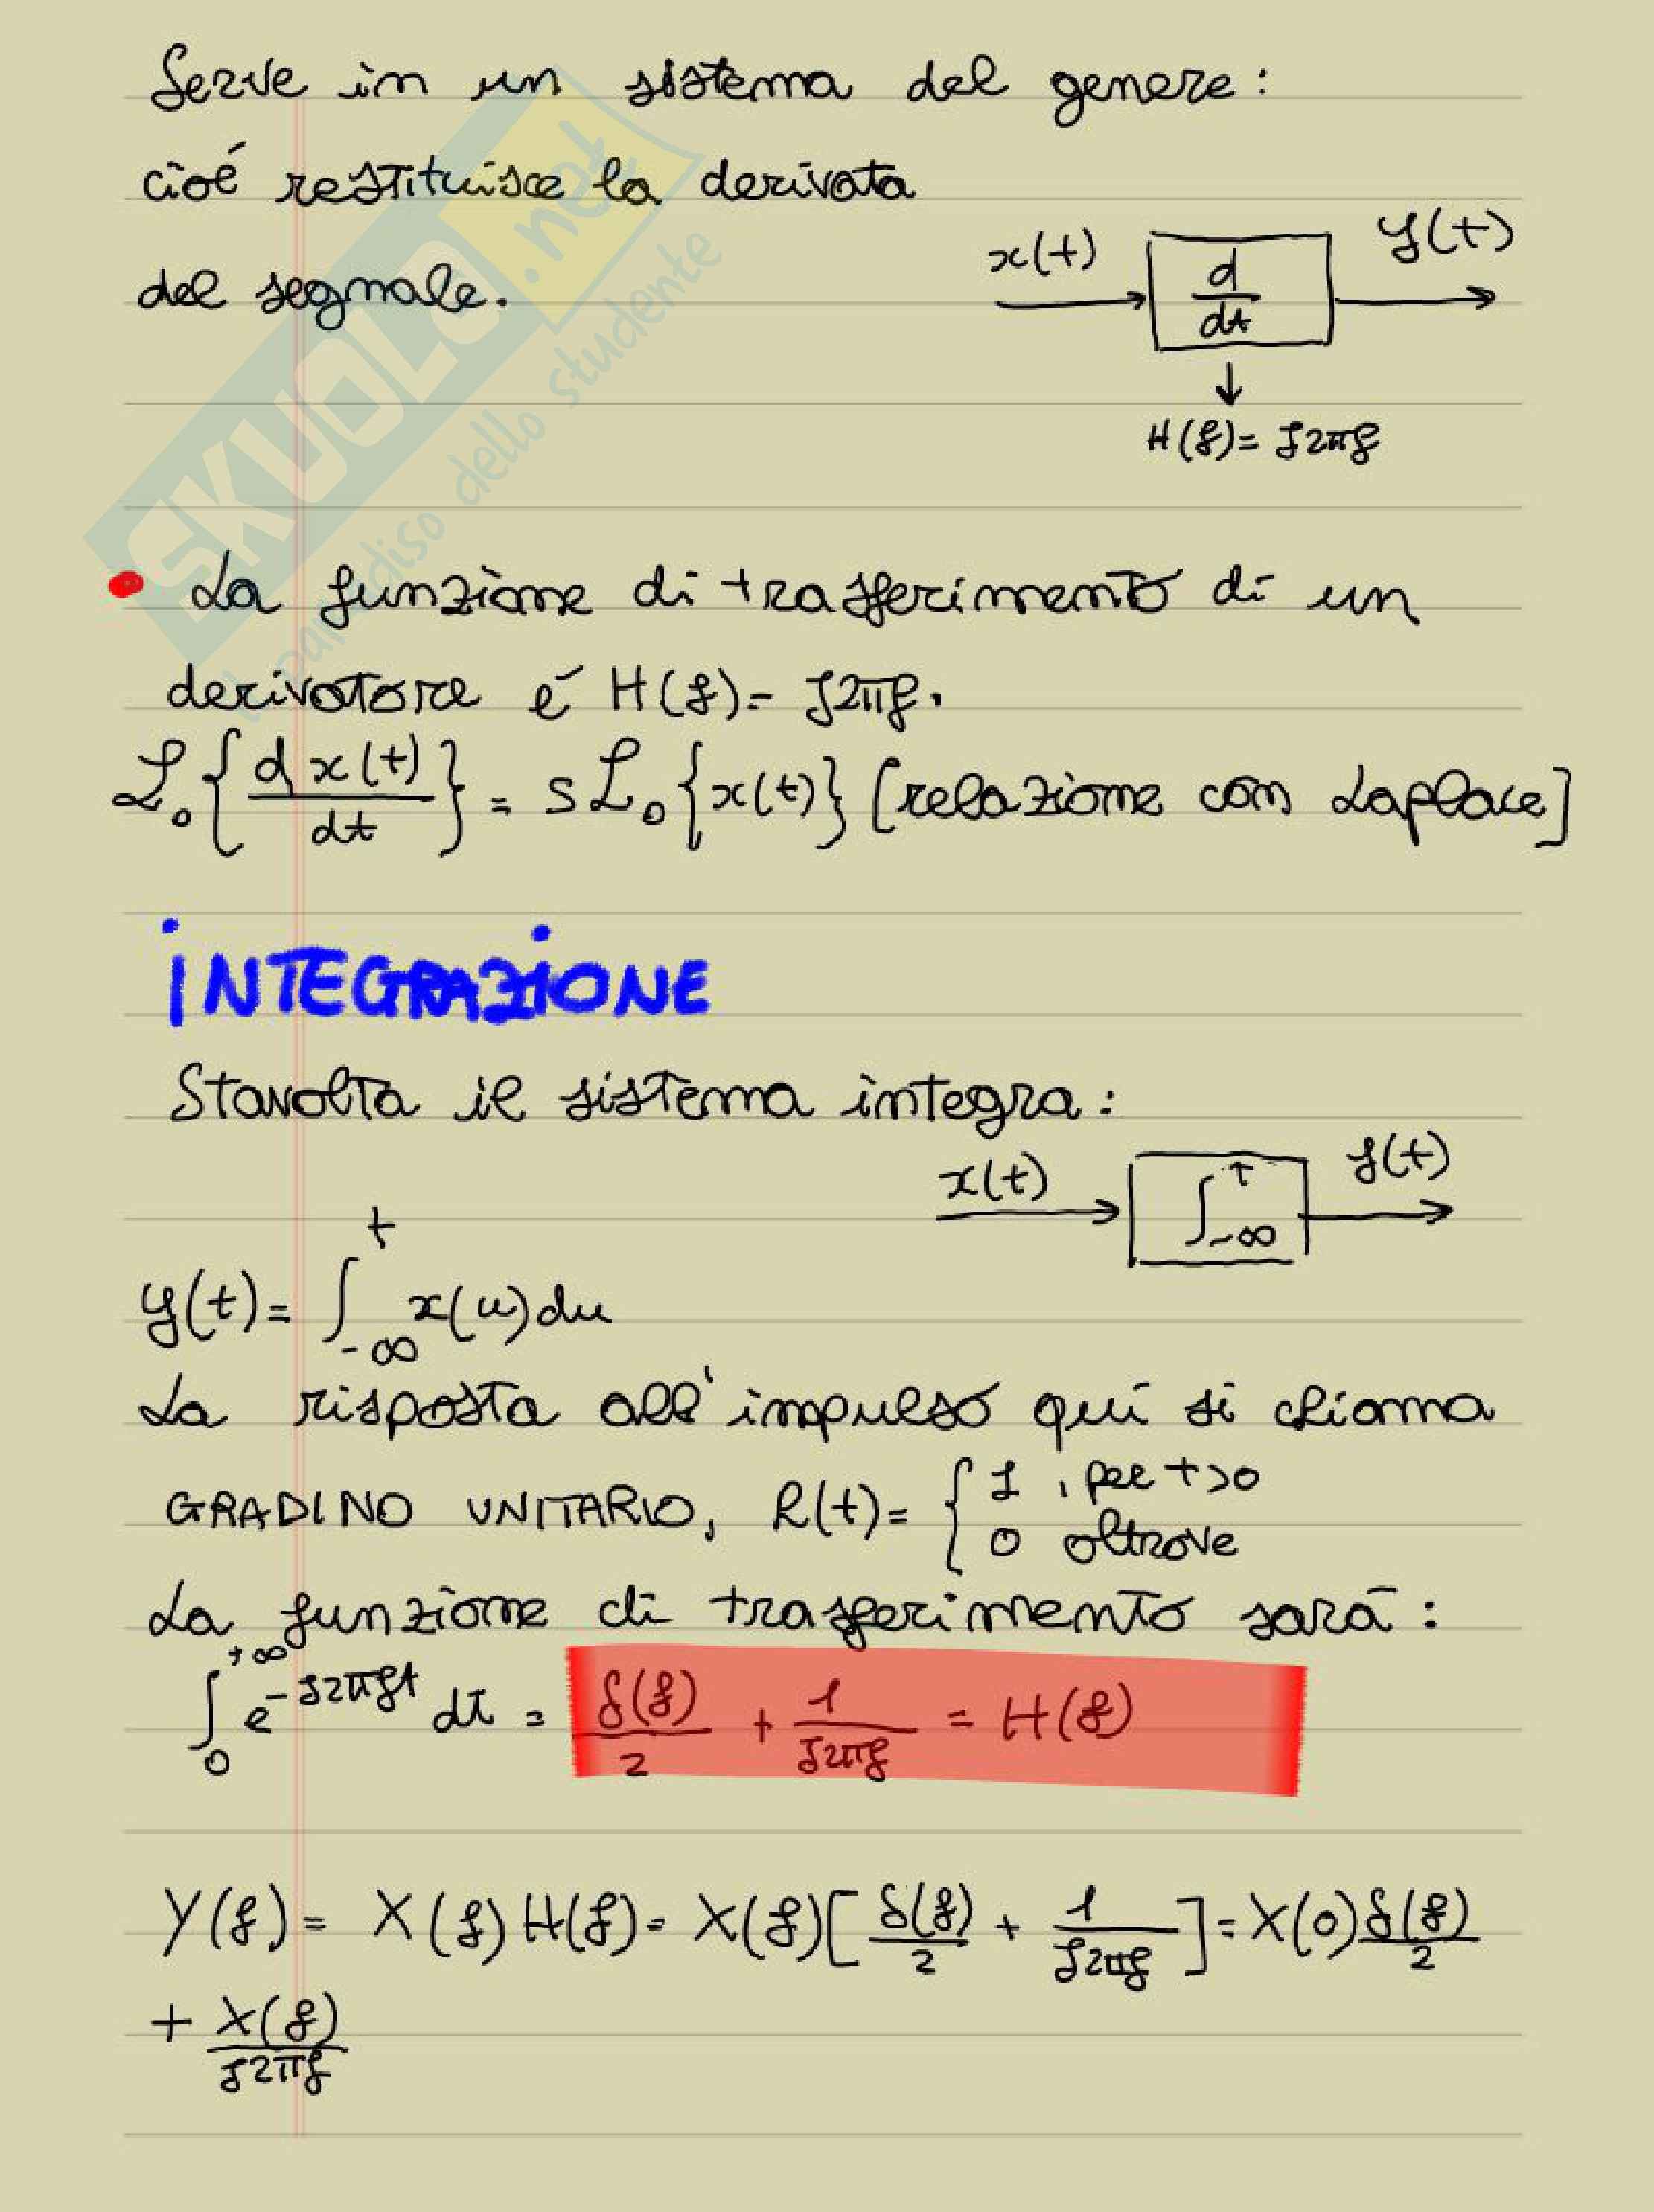 Serve in un sistema del genere:
cioé restituisce la derivata
del segnale.
x(t) d/dt y(t)
↓
H(f)= J2πf
• La funzione di trasferimento di un
derivatore é H(f)= J2πf.
ℒ₀{dx(t)/dt} = sℒ₀{x(t)} [relazione con Laplace]
iNTEGRAZiONE
Stavolta il sistema integra:
x(t) ∫_{-∞}^{t} y(t)
y(t)= ∫_{-∞}^{t} x(u)du
La risposta all'impulso qui si chiama
GRADINO UNITARIO, h(t)= { 1 , per t>0
0 altrove
La funzione di trasferimento sarà:
∫_{0}^{+∞} e^{-J2πft} dt = δ(f)/2 + 1/J2πf = H(f)
Y(f)= X(f)H(f)= X(f)[δ(f)/2 + 1/J2πf]= X(0)δ(f)/2
+ X(f)/J2πf
SKUOLA.net
il paradiso dello studente